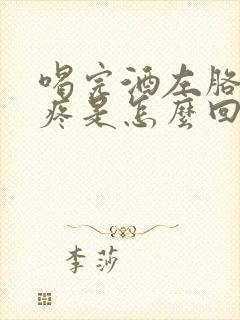 喝完酒左胳
疼是怎麼回
李莎